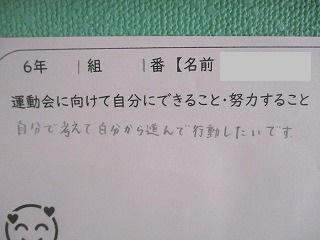 6年 1組 1番【名前
運動会に向けて自分にできること・努力すること
自分で考えて、自分から進んで行動したいです。